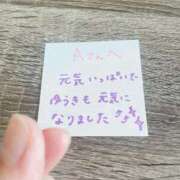 Aさんへ
元気いっぱいで
ゆうきも元気に
なりました